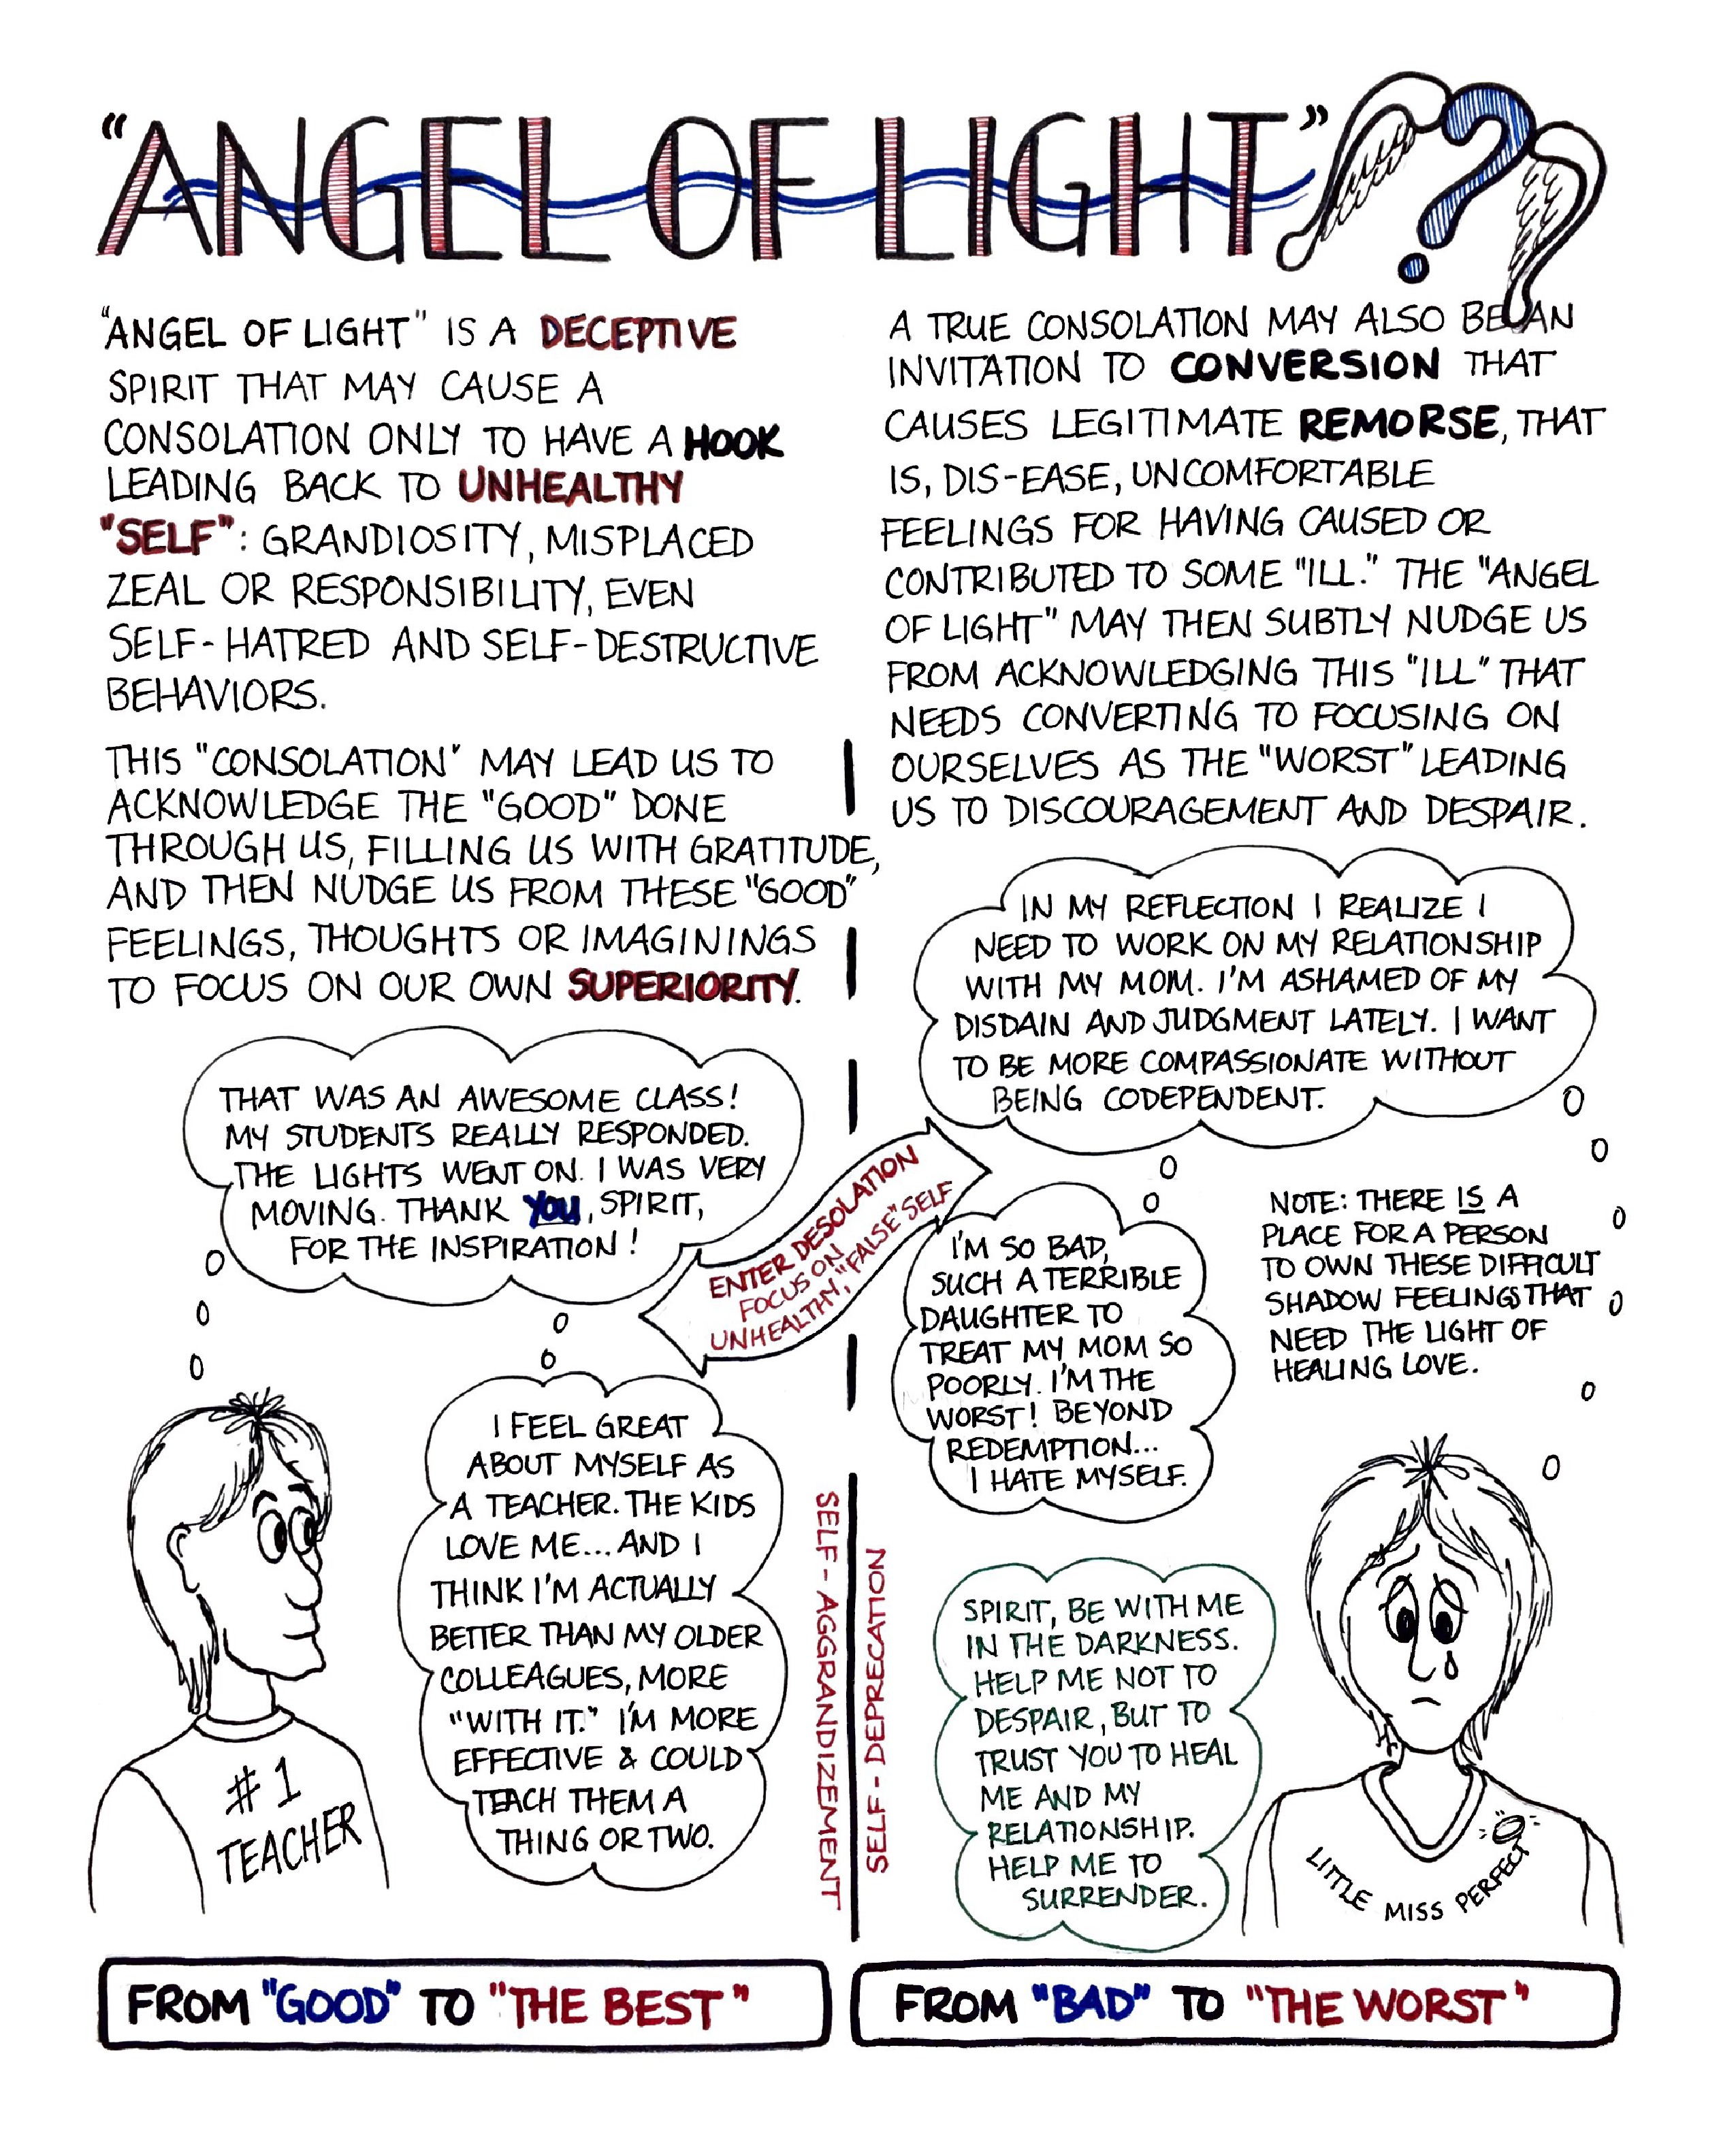 "ANGEL OF LIGHT"?
"ANGEL OF LIGHT" IS A DECEPTIVE
SPIRIT THAT MAY CAUSE A
CONSOLATION ONLY TO HAVE A HOOK
LEADING BACK TO UNHEALTHY
"SELF": GRANDIOSITY, MISPLACED
ZEAL OR RESPONSIBILITY, EVEN
SELF-HATRED AND SELF-DESTRUCTIVE
BEHAVIORS.
THIS "CONSOLATION" MAY LEAD US TO
ACKNOWLEDGE THE "GOOD" DONE
THROUGH US, FILLING US WITH GRATITUDE,
AND THEN NUDGE US FROM THESE "GOOD"
FEELINGS, THOUGHTS OR IMAGININGS
TO FOCUS ON OUR OWN SUPERIORITY.
THAT WAS AN AWESOME CLASS!
MY STUDENTS REALLY RESPONDED.
THE LIGHTS WENT ON. I WAS VERY
MOVING. THANK YOU, SPIRIT,
FOR THE INSPIRATION!
I FEEL GREAT
ABOUT MYSELF AS
A TEACHER. THE KIDS
LOVE ME... AND I
THINK I'M ACTUALLY
BETTER THAN MY OLDER
COLLEAGUES, MORE
"WITH IT." I'M MORE
EFFECTIVE & COULD
TEACH THEM A
THING OR TWO.
#1
TEACHER
SELF-AGGRANDIZEMENT
FROM "GOOD" TO "THE BEST"
ENTER DESOLATION
FOCUS ON
UNHEALTHY, "FALSE" SELF
A TRUE CONSOLATION MAY ALSO BE AN
INVITATION TO CONVERSION THAT
CAUSES LEGITIMATE REMORSE, THAT
IS, DIS-EASE, UNCOMFORTABLE
FEELINGS FOR HAVING CAUSED OR
CONTRIBUTED TO SOME "ILL." THE "ANGEL
OF LIGHT" MAY THEN SUBTLY NUDGE US
FROM ACKNOWLEDGING THIS "ILL" THAT
NEEDS CONVERTING TO FOCUSING ON
OURSELVES AS THE "WORST" LEADING
US TO DISCOURAGEMENT AND DESPAIR.
IN MY REFLECTION I REALIZE I
NEED TO WORK ON MY RELATIONSHIP
WITH MY MOM. I'M ASHAMED OF MY
DISDAIN AND JUDGMENT LATELY. I WANT
TO BE MORE COMPASSIONATE WITHOUT
BEING CODEPENDENT.
I'M SO BAD,
SUCH A TERRIBLE
DAUGHTER TO
TREAT MY MOM SO
POORLY. I'M THE
WORST! BEYOND
REDEMPTION...
I HATE MYSELF.
NOTE: THERE IS A
PLACE FOR A PERSON
TO OWN THESE DIFFICULT
SHADOW FEELINGS THAT
NEED THE LIGHT OF
HEALING LOVE.
SELF-DEPRECATION
SPIRIT, BE WITH ME
IN THE DARKNESS.
HELP ME NOT TO
DESPAIR, BUT TO
TRUST YOU TO HEAL
ME AND MY
RELATIONSHIP.
HELP ME TO
SURRENDER.
LITTLE MISS PERFECT
FROM "BAD" TO "THE WORST"